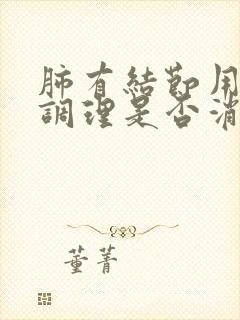 肺有結節用
調理是否消
董菁